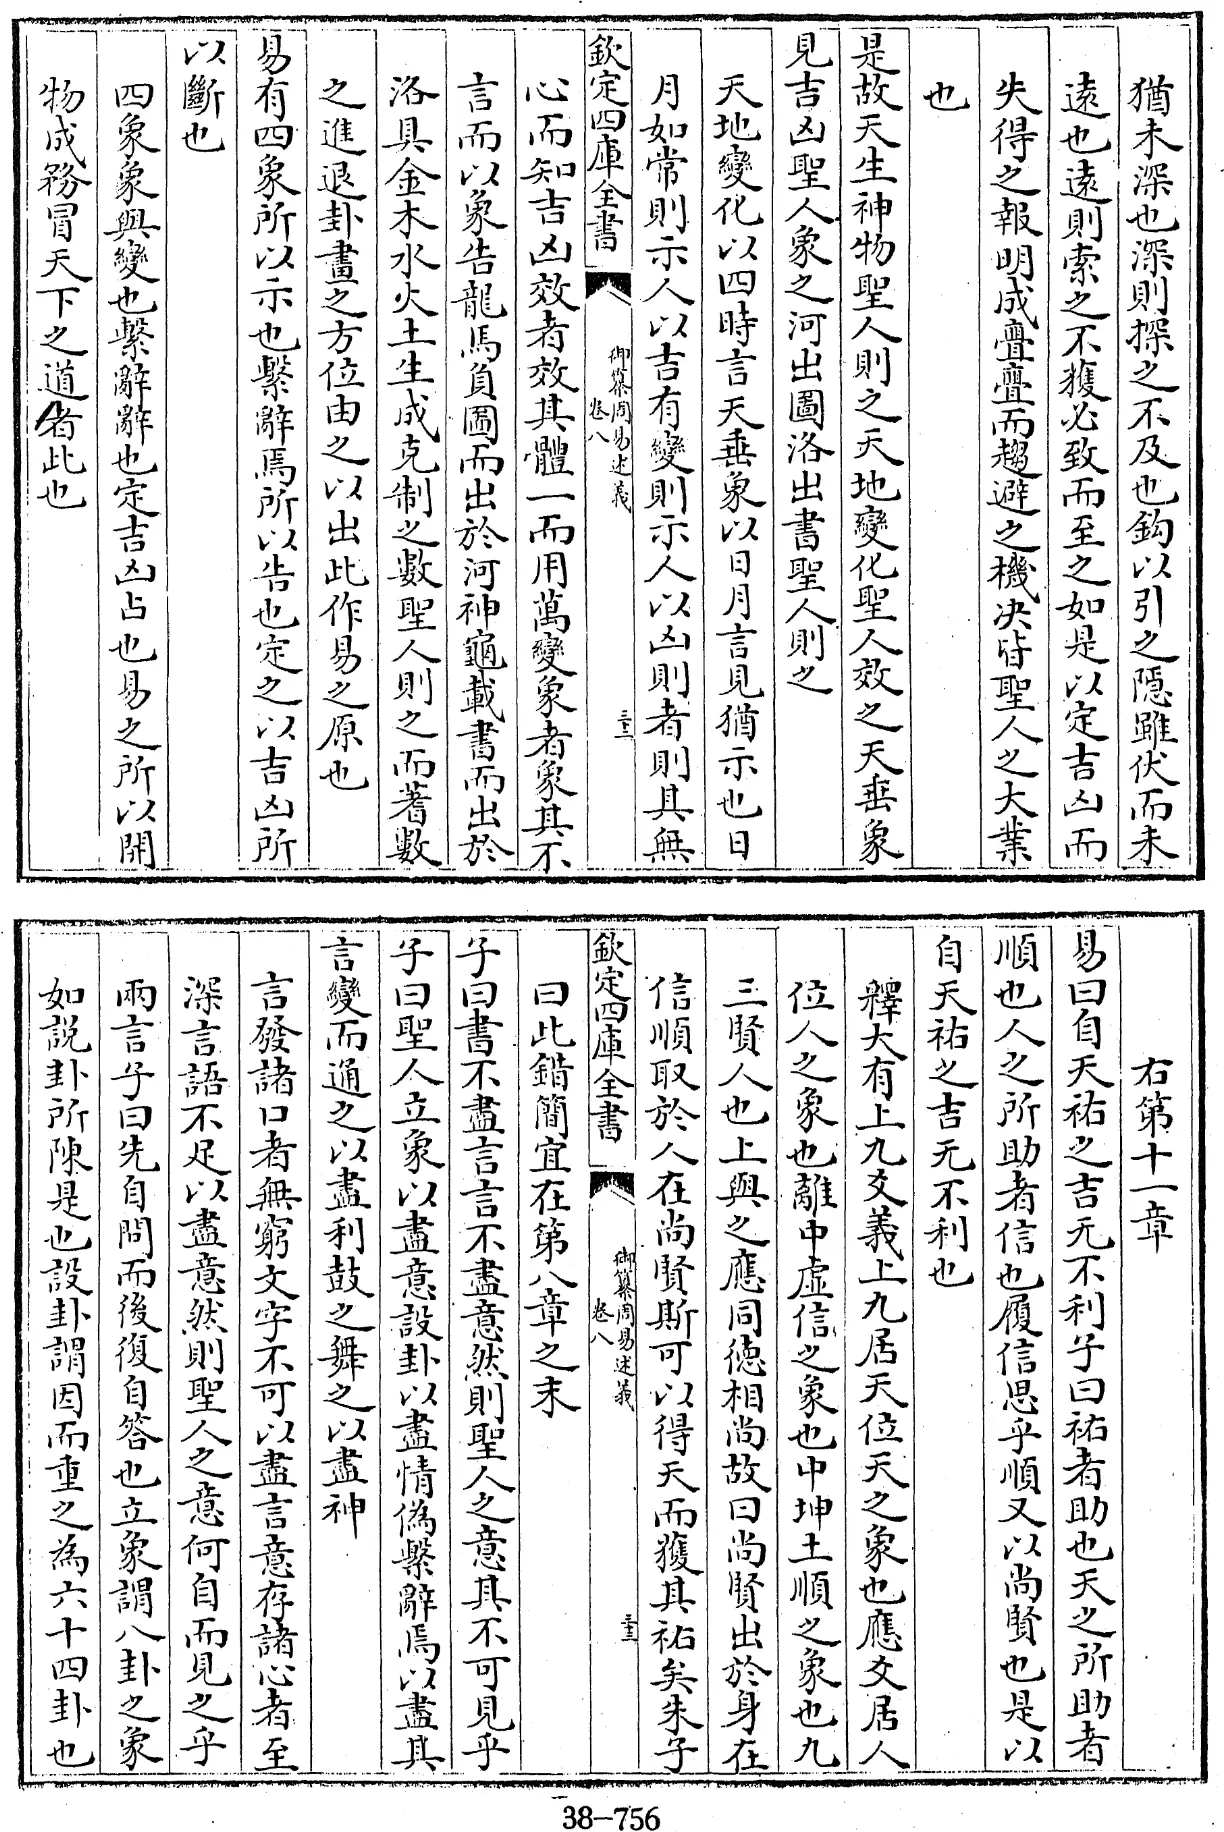 猶未深也深則探之不及也鈎以引之隱雖伏而未
遠也遠則索之不獲必致而至之如是以定吉凶而
失得之報明成亹亹而趨避之機决皆聖人之大業
也
是故天生神物聖人則之天地變化聖人效之天垂象
見吉凶聖人象之河出圖洛出書聖人則之
天地變化以四時言天垂象以日月言見猶示也日
月如常則示人以吉有變則示人以凶則者則其無
欽定四庫全書
御纂周易述義
卷八
三十二
心而知吉凶效者效其體一而用萬變象者象其不
言而以象告龍馬負圖而出於河神龜載書而出於
洛具金木水火土生成克制之數聖人則之而蓍數
之進退卦畫之方位由之以出此作易之原也
易有四象所以示也繫辭焉所以告也定之以吉凶所
以斷也
四象象與變也繫辭辭也定吉凶占也易之所以開
物成務冒天下之道者此也
右第十一章
易曰自天祐之吉无不利子曰祐者助也天之所助者
順也人之所助者信也履信思乎順又以尚賢也是以
自天祐之吉无不利也
釋大有上九爻義上九居天位天之象也應爻居人
位人之象也離中虛信之象也中坤土順之象也九
三賢人也上與之應同德相尚故曰尚賢出於身在
信順取於人在尚賢斯可以得天而獲其祐矣朱子
欽定四庫全書
御纂周易述義
卷八
三十三
曰此錯簡宜在第八章之末
子曰書不盡言言不盡意然則聖人之意其不可見乎
子曰聖人立象以盡意設卦以盡情偽繫辭焉以盡其
言變而通之以盡利鼓之舞之以盡神
言發諸口者無窮文字不可以盡言意存諸心者至
深言語不足以盡意然則聖人之意何自而見之乎
兩言子曰先自問而後復自答也立象謂八卦之象
如說卦所陳是也設卦謂因而重之為六十四卦也
38-756